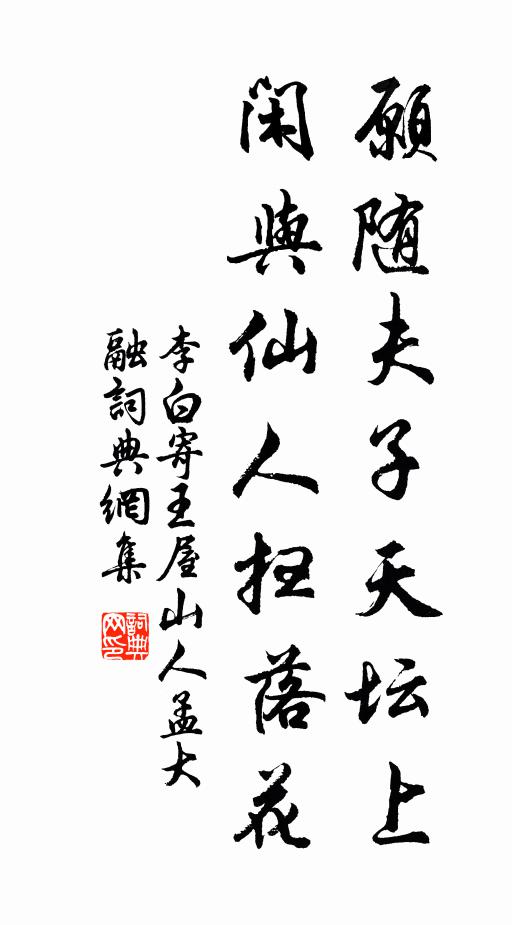 願随夫子天坛上
閑與仙人扫落花
李白寄王屋山人孟大
融詞典網集
詞典
网印